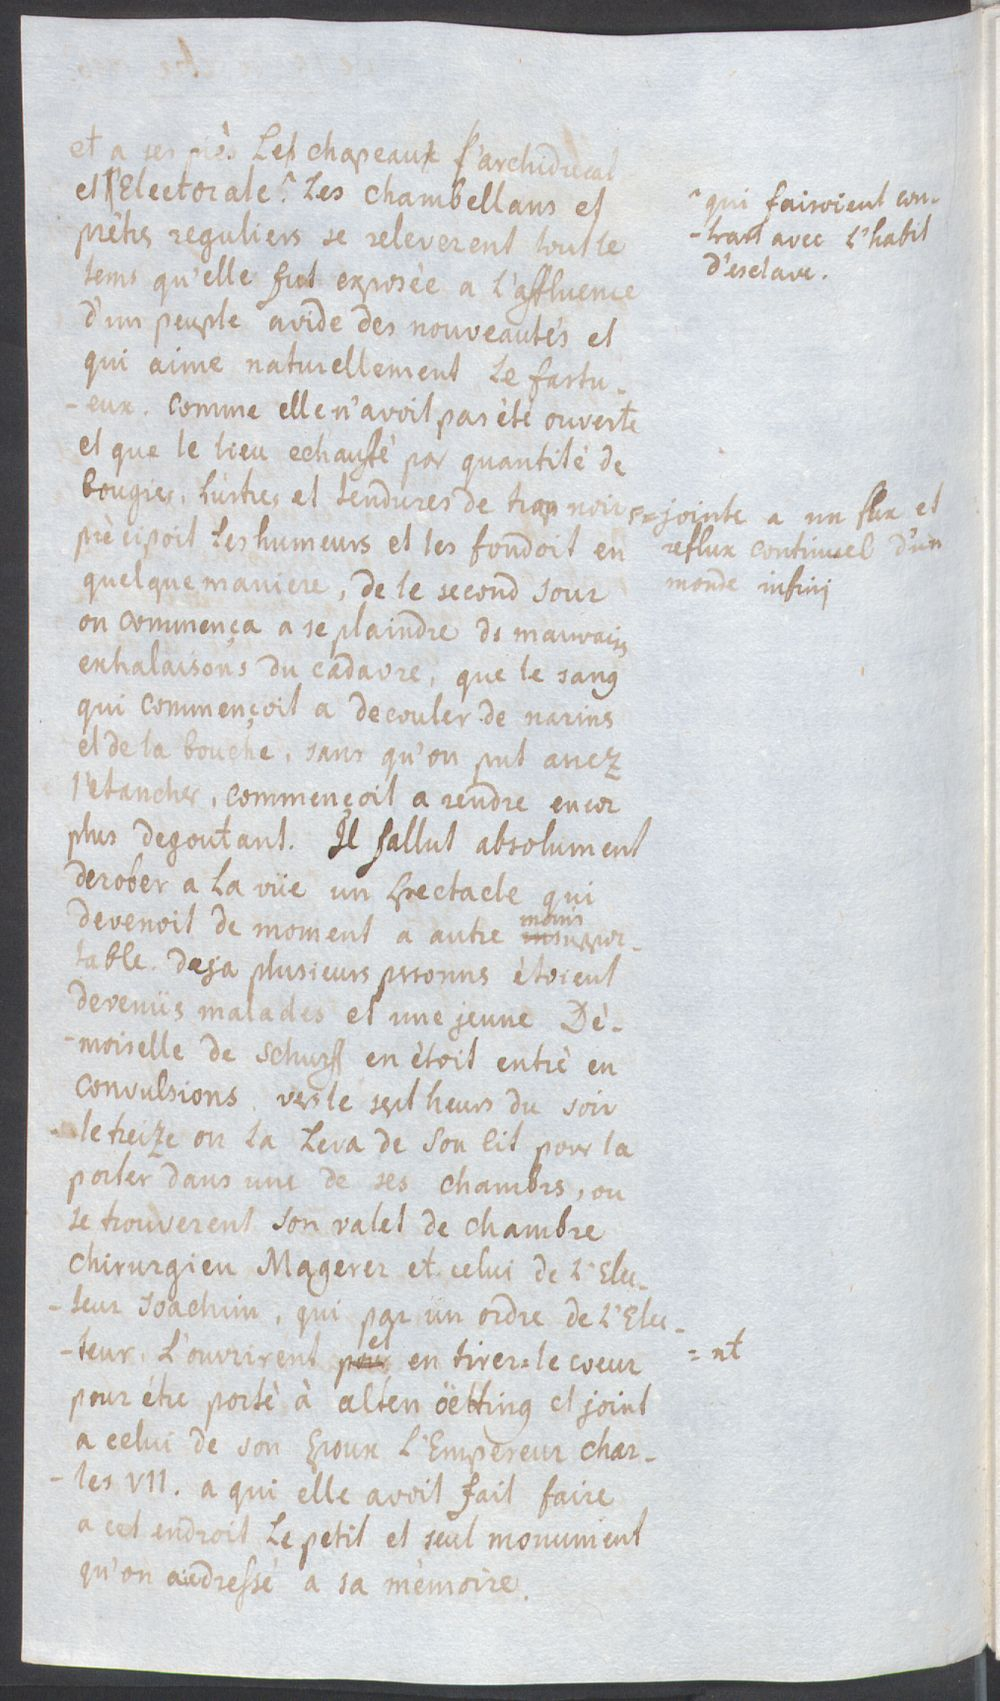 et a ses piès Les chapeaux l'archiducal
et l'Electorale^. Les chambellans et
prêtres reguliers se releverent tout le
tems qu'elle fut exposée a l'affluence
d'un peuple avide des nouveautés et
qui aime naturellement le fastu-
-eux. Comme elle n'avoit pas été ouverte
et que le lieu echauffé par quantité de
bougies, lustres et tendures de drap noir
précipoit les humeurs et les fondoit en
quelque maniere, de le second Jour
on commença a se plaindre de mauvaises
exhalaisons du cadavre, que le sang
qui commençoit a decouler de narins
et de la bouche, sans qu'on put assez
l'etancher, commençoit a rendre encor
plus degoutant. Il fallut absolument
derober a la vüe un spectacle qui
devenoit de moment à autre moins suppor-
table. Deja plusieurs personnes étoient
devenües malades et une jeune Dé-
-moiselle de Schurff en étoit entré en
convulsions. vers le sept heurs du soir
le treize on la Leva de Son lit pour la
porter dans une de ses chambrs, ou
se trouverent Son valet de chambre
chirurgien Magerer et celui de L'Elec-
-teur Joachim, qui par ün ordre de L'Elec-
-teur, L'ouvrirent et en tirer= le coeur
pour étre porté à alten öetting et joint
a celui de son Epoux L'Empereur Char-
-les VII. a qui elle avoit fait faire
a cet endroit Le petit et seul monument
qu'on a adressé a sa mémoire.
^ qui faisoient con-
-trast avec L'habit
d'esclave.
= jointe a un flux et
reflux continuel d'un
monde infinj
= nt